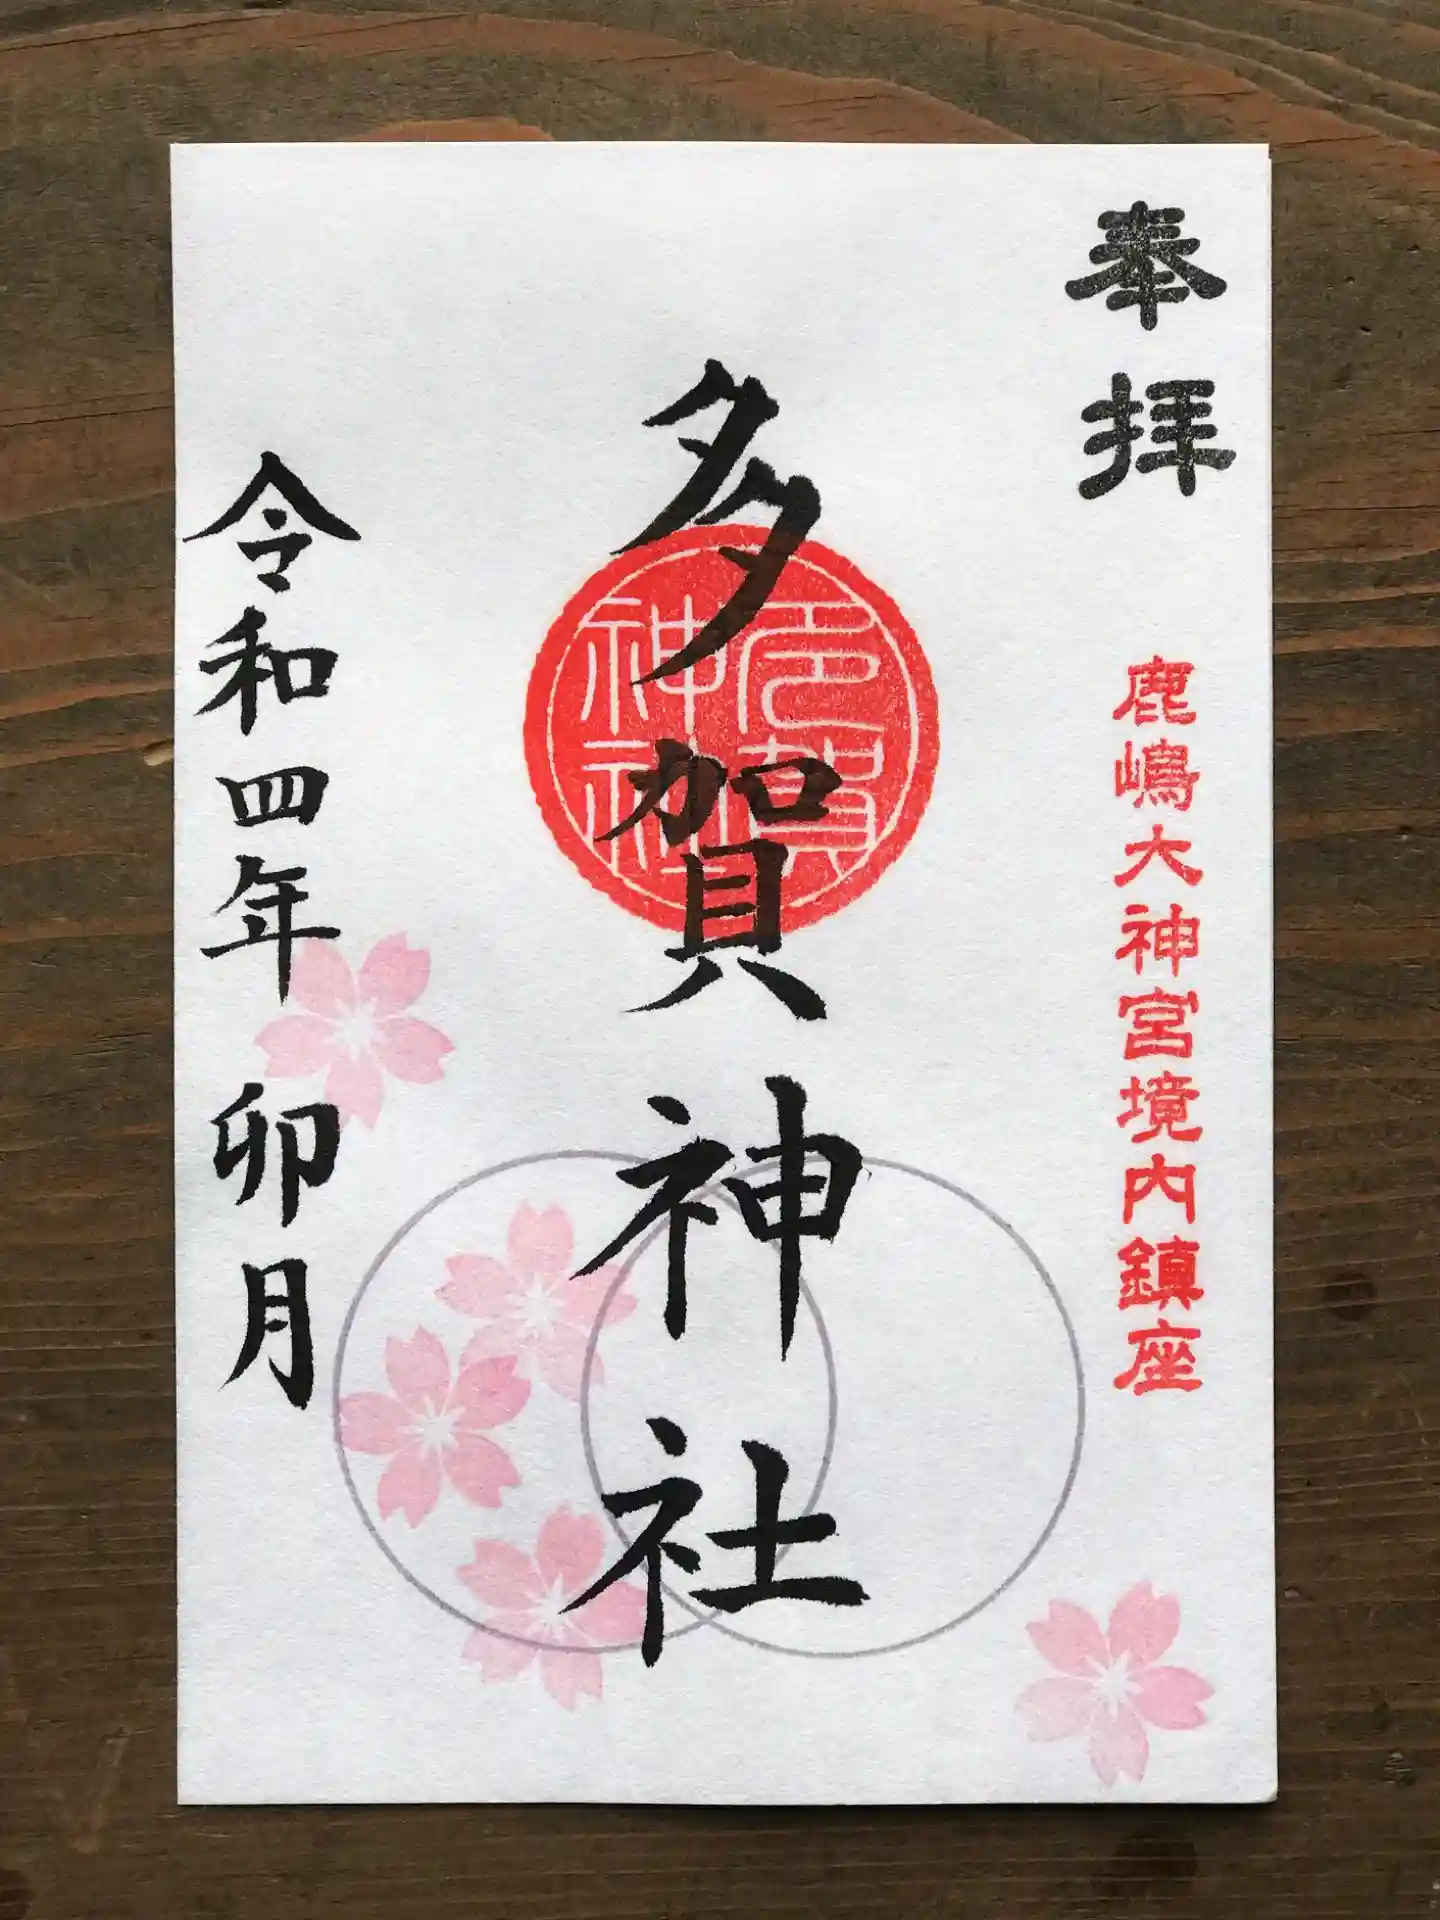 奉拝
鹿嶋大神宮境内鎮座
多賀神社
多賀
神社
令和四年 卯月